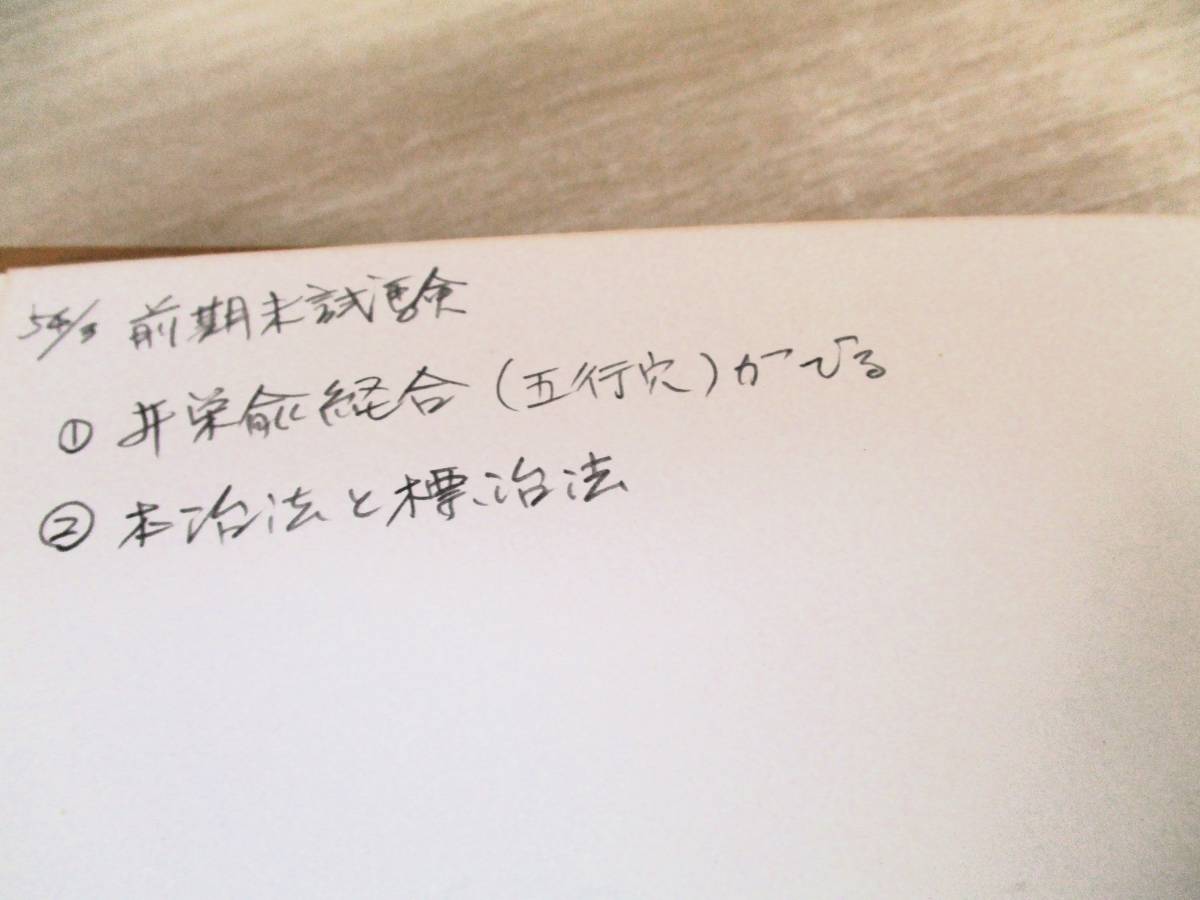 前期末試験
① 井栄兪経合(五行穴)がでる
② 本治法と標治法